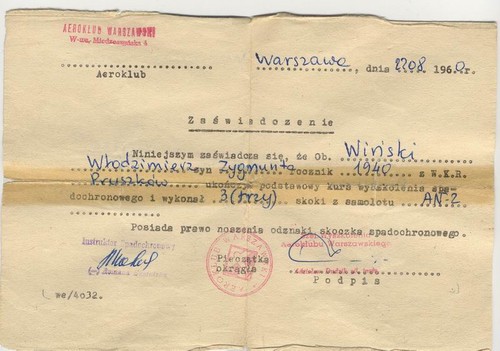 AEROKLUB WARSZAWSKI
W-wa, Miedzeszyńska 4
Aeroklub
Warszawa, dnia 22.08 1960 r.
Zaświadczenie
Niniejszym zaświadcza się, że Ob. Wiński
Włodzimierz syn Zygmunta rocznik 1940 z W.K.R.
Pruszków ukończył podstawowy kurs wyszkolenia spa-
dochronowego i wykonał 3 (trzy) skoki z samolotu AN-2
Posiada prawo noszenia odznaki skoczka spadochronowego.
Instruktor Spadochronowy
Aeroklubu Warszawskiego
Pieczątka
okrągła
Podpis
we/4032.